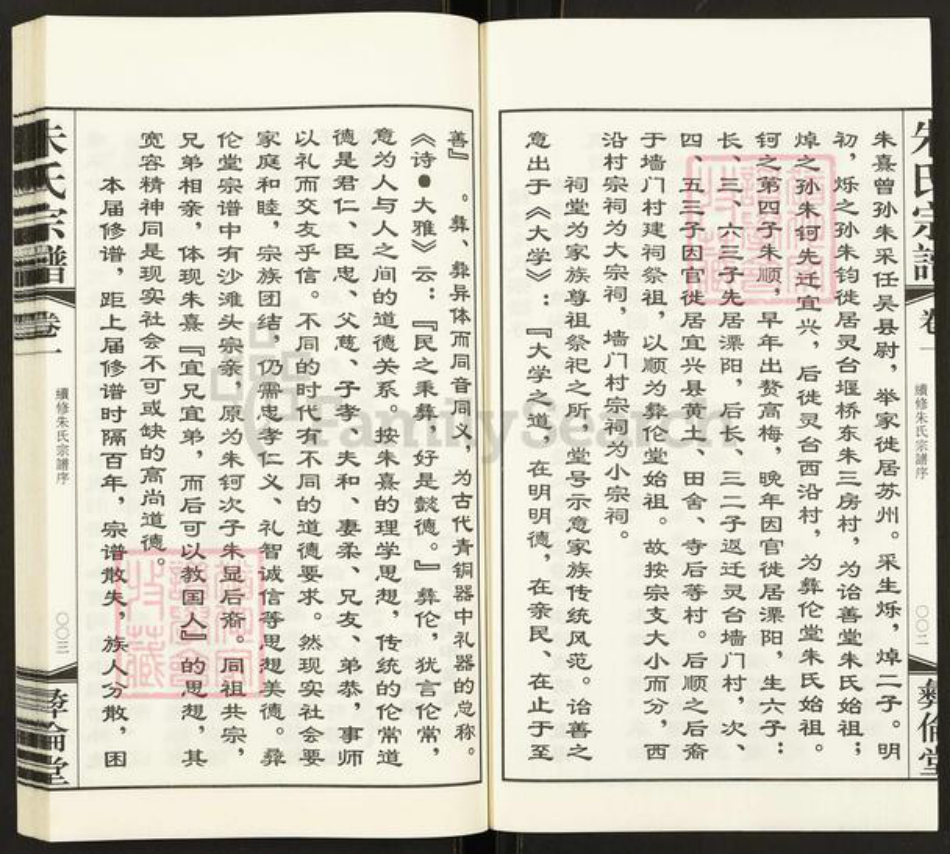 朱氏宗譜
卷一
續修朱氏宗譜序
〇〇二
彝倫堂
朱熹曾孙朱采任吴县尉，举家徙居苏州。采生烁，焯二子。明
初，烁之孙朱钧徙居灵台堰桥东朱三房村，为诒善堂朱氏始祖；
焯之孙朱钶先迁宜兴，后徙灵台西沿村，为彝伦堂朱氏始祖。
钶之第四子朱顺，早年出赘高梅，晚年因官徙居溧阳，生六子：
长、三、六三子先居溧阳，后长、三二子返迁灵台墙门村，次、
四、五三子因官徙居宜兴县黄土、田舍、寺后等村。后顺之后裔
于墙门村建祠祭祖，以顺为彝伦堂始祖。故按宗支大小而分，西
沿村宗祠为大宗祠，墙门村宗祠为小宗祠。
祠堂为家族尊祖祭祀之所，堂号示意家族传统风范。诒善之
意出于《大学》：『大学之道，在明明德，在亲民、在止于至
善』。彝、彜异体而同音同义，为古代青铜器中礼器的总称。
《诗●大雅》云：『民之秉彝，好是懿德。』彝伦，犹言伦常，
意为人与人之间的道德关系。按朱熹的理学思想，传统的伦常道
德是君仁、臣忠、父慈、子孝、夫和、妻柔、兄友、弟恭，事师
以礼而交友乎信。不同的时代有不同的道德要求。然现实社会要
家庭和睦，宗族团结，仍需忠孝仁义、礼智诚信等思想美德。彝
伦堂宗谱中有沙滩头宗亲，原为朱钶次子朱显后裔。同祖共宗，
兄弟相亲，体现朱熹『宜兄宜弟，而后可以教国人』的思想，其
宽容精神同是现实社会不可或缺的高尚道德。
本届修谱，距上届修谱时隔百年，宗谱散失，族人分散，困
朱氏宗譜
卷一
續修朱氏宗譜序
〇〇三
彝倫堂
FamilySearch